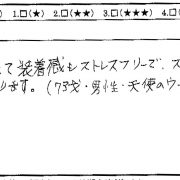 1.□(★) 2.□(★★) 3.□(★★★) 4.□(
て装着感もストレスフリーで、ス
ります。(73才・男性・天使のウ